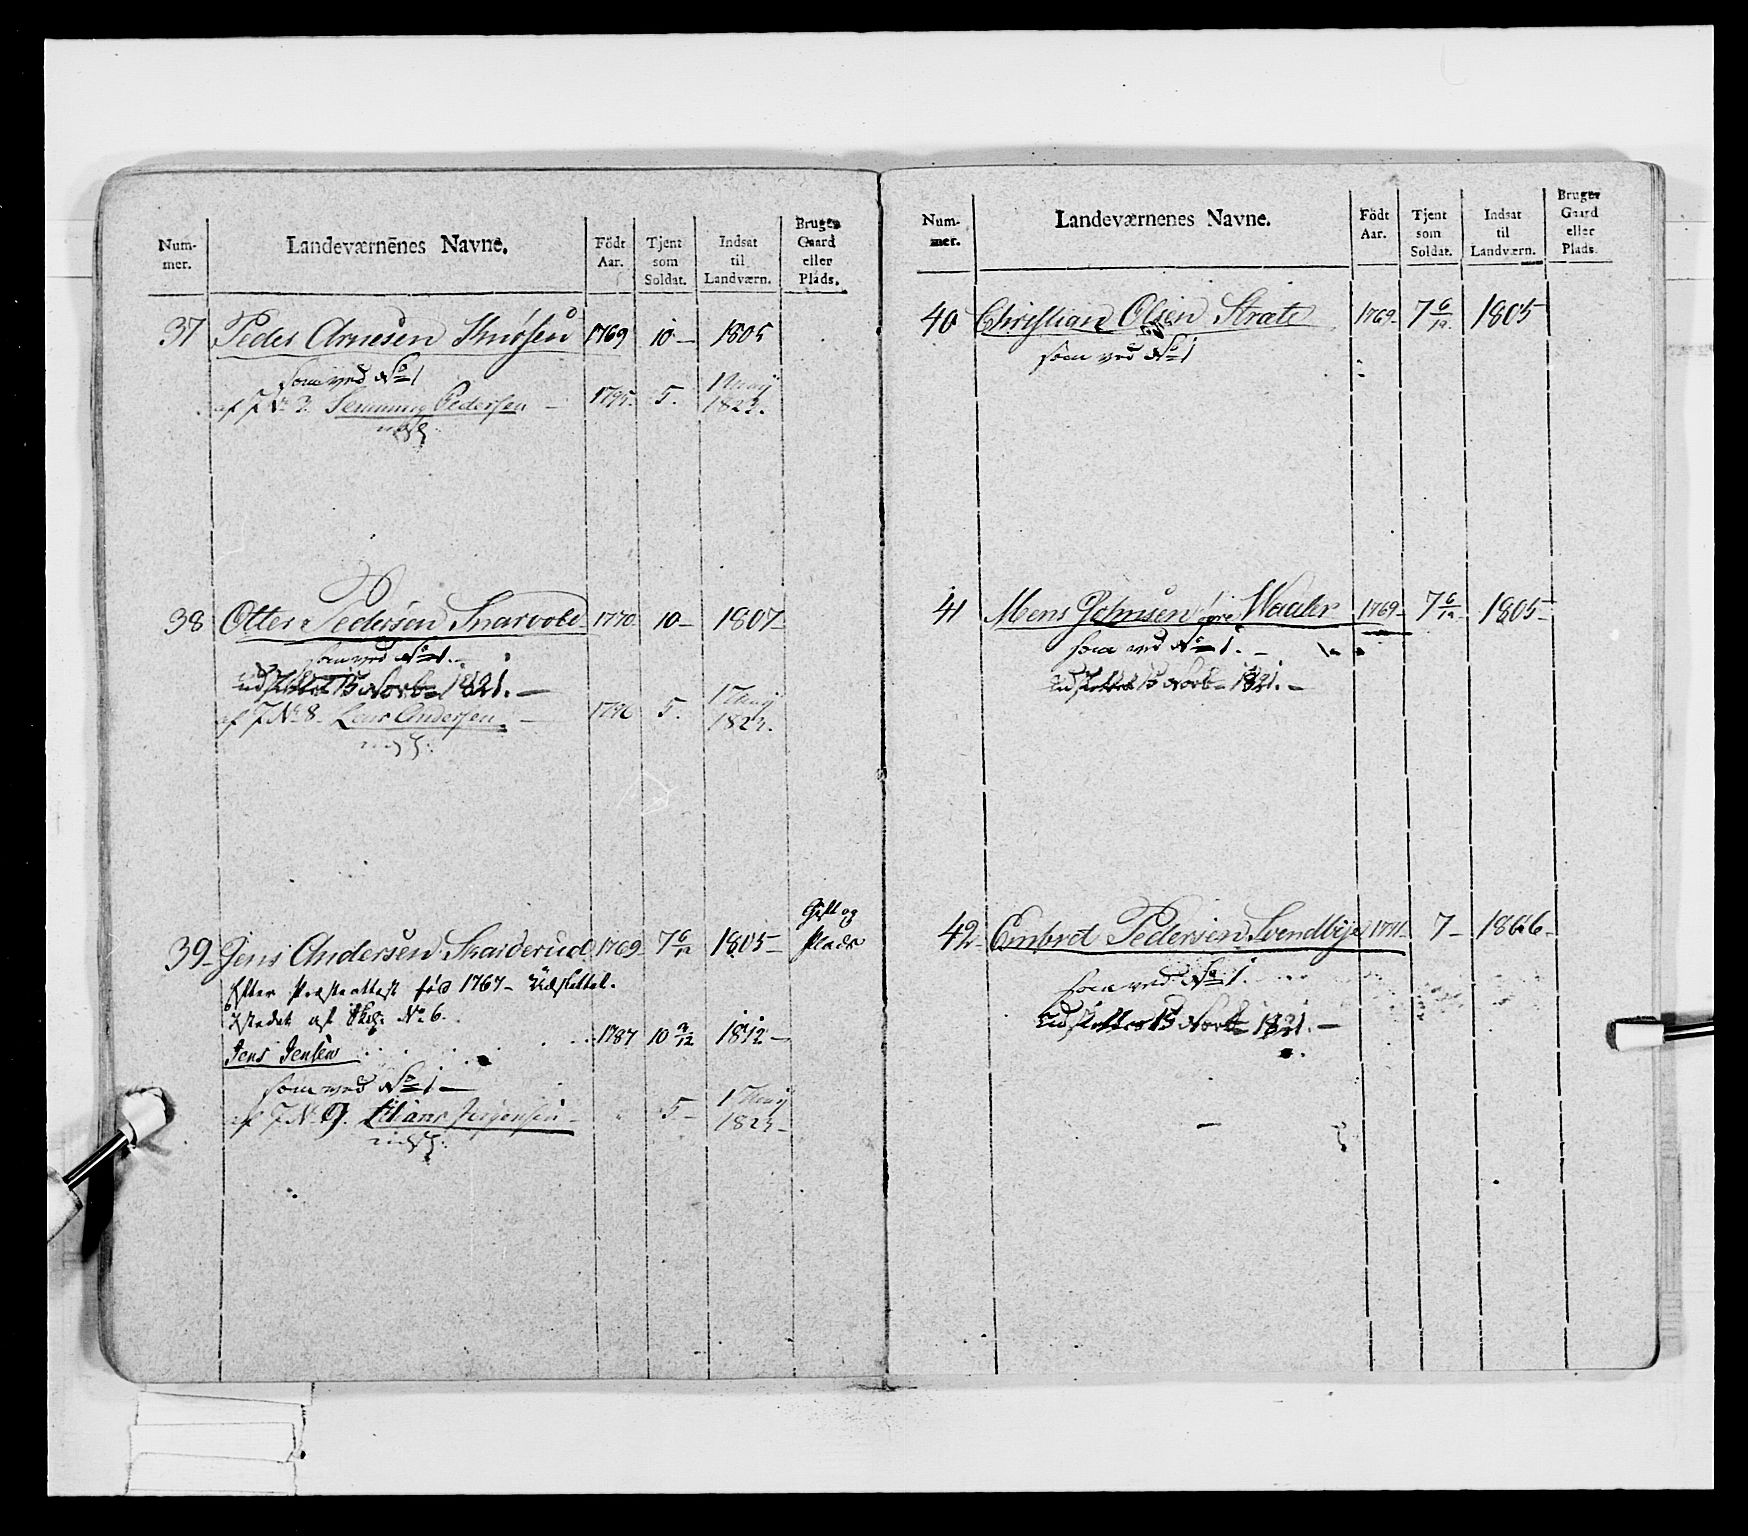 Num-
mer.
Landeværnenes Navne.
Födt
Aar.
Tjent
som
Soldat.
Indsat
til
Landværn.
Bruger
Gaard
eller
Plads.
37 Peder Arnesen 1769 10 — 1805
som ved No 1
af J No 3. Semming Pedersen — 1795. 5. 1 May
1823.
38 Otter Pedersen Snarvold 1770 10 — 1807 —
som ved No 1. —
udslettet 15 Novb 1821. —
af J No 8. Lars Andersen — 1796 5. 1 May
1823.
39 — Jens Andersen Skarderud 1769 — 7 6/12 1805 — Gift og
Plads
Efter Præsteattest fød 1767 — Udslettet.
Istedet af No 6.
Jens Jensen 1787 10 2/12 1812 —
som ved No 1 —
af J No 9. Hans Jörgensen — 5 — 1 May
1823 —
Num-
mer.
Landeværnenes Navne.
Födt
Aar.
Tjent
som
Soldat.
Indsat
til
Landværn.
Bruger
Gaard
eller
Plads.
40 Christian Olsen Strate 1769 — 7 6/12 1805
som ved No 1
41 Mens Johnsen Waaler 1769 — 7 6/12 — 1805 —
som ved No 1. —
udslettet 15 Novb 1821. —
42 — Embret Pedersen Svendbye 1771 — 7 — 1806 —
som ved No 1.
udslettet 15 Novb 1821. —